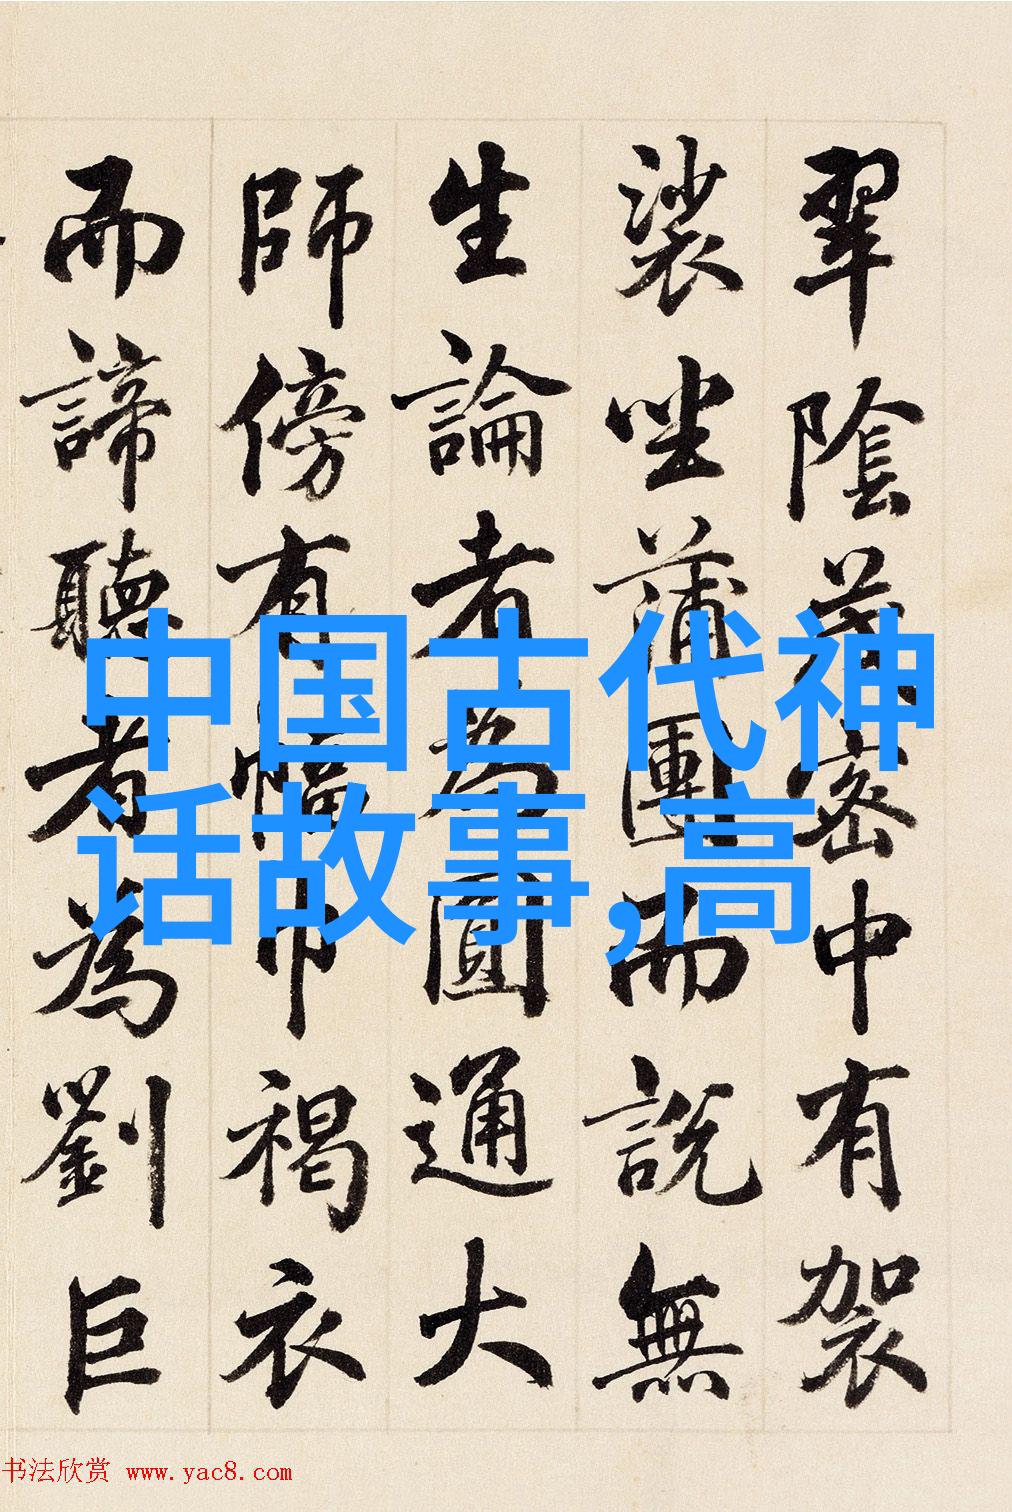 翠陰茂密中有袈
裟坐蒲團而說無
生論者為圓通大
師傍有幅巾褐衣
而諦聽者為劉巨
中国古代神
话故事,高
书法欣赏 www.yac8.com